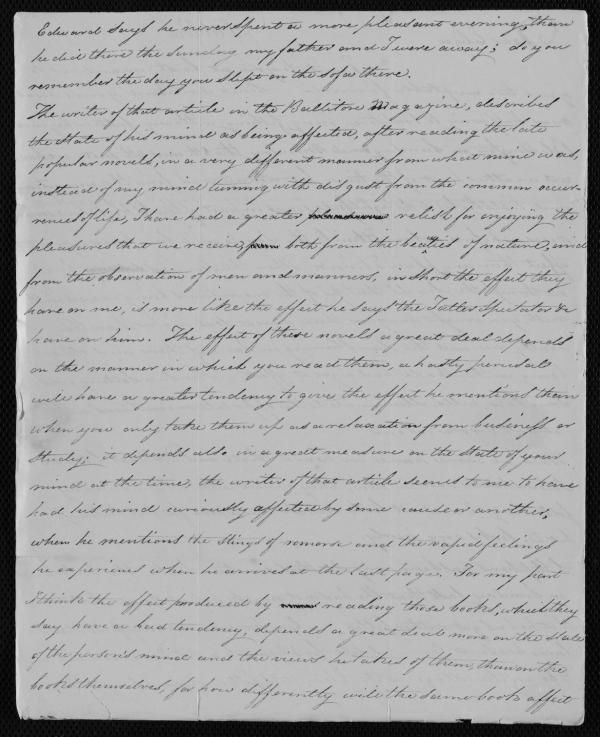 Edward says he never spent a more pleasant evening, than
he did there the Sunday my father and I were away; do you
remember the day you slept on the sofa there.
The writer of that article in the Balliton Magazine, describes
the state of his mind as being affected, after reading the late
popular novels, in a very different manner from what mine was,
instead of my mind turning with disgust from the common occur-
rences of life, I have had a greater relish for enjoying the
pleasures that we receive, both from the beauties of nature, and
from the observation of men and manners, in short the effect they
have on me, is more like the effect he says the Tatler Spectator &c
have on him. The effect of these novels a great deal depends
on the manner in which you read them, a hasty perusal
will have a greater tendency to give the effect he mentions than
when you only take them up as a relaxation from business or
Study; it depends also in a great measure on the state of your
mind at the time, the writer of that article seems to me to have
had his mind curiously affected by some cause or another,
when he mentions the Stings of remorse and the vapid feelings
he experiences when he arrives at the last page. For my part
I think the effect produced by reading those books, which they
say have a bad tendency, depends a great deal more on the state
of the person's mind and the views he takes of them, than on the
books themselves, for how differently will the same books affect